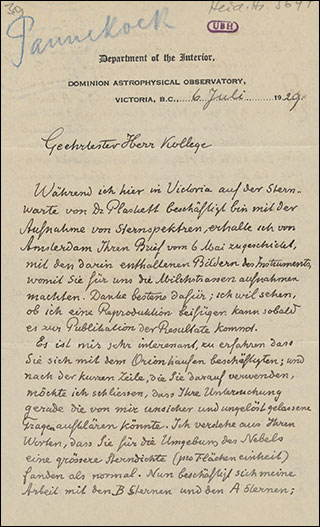 39
Pannekoek
Heid. Hs. 3691
UBH
Department of the Interior,
DOMINION ASTROPHYSICAL OBSERVATORY,
VICTORIA, B.C., 6 Juli 1929.
Geehrtester Herr Kollege
Während ich hier in Victoria auf der Stern-
warte von Dr Plaskett beschäftigt bin mit der
Aufnahme von Sternspektren, erhalte ich von
Amsterdam Ihren Brief von 6 Mai zugeschickt,
mit den darin enthaltenen Bildern des Instruments,
womit Sie für uns die Milchstrassenaufnahmen
machten. Danke bestens dafür; ich will sehen,
ob ich eine Reproduktion beifügen kann sobald
es zur Publikation der Resultate kommt.
Es ist mir sehr interessant, zu erfahren dass
Sie sich mit dem Orionhaufen beschäftigten; und
nach der kurzen Zeile, die Sie darauf verwenden,
möchte ich schliessen, dass Ihre Untersuchung
gerade die von mir unsicher und ungelöst gelassene
Fragen aufklären könnte. Ich verstehe aus Ihren
Worten, dass Sie für die Umgebung des Nebels
eine grössere Sterndichte (pro Flächeneinheit)
fanden als normal. Nun beschäftigt sich meine
Arbeit mit den B Sternen und den A Sternen;